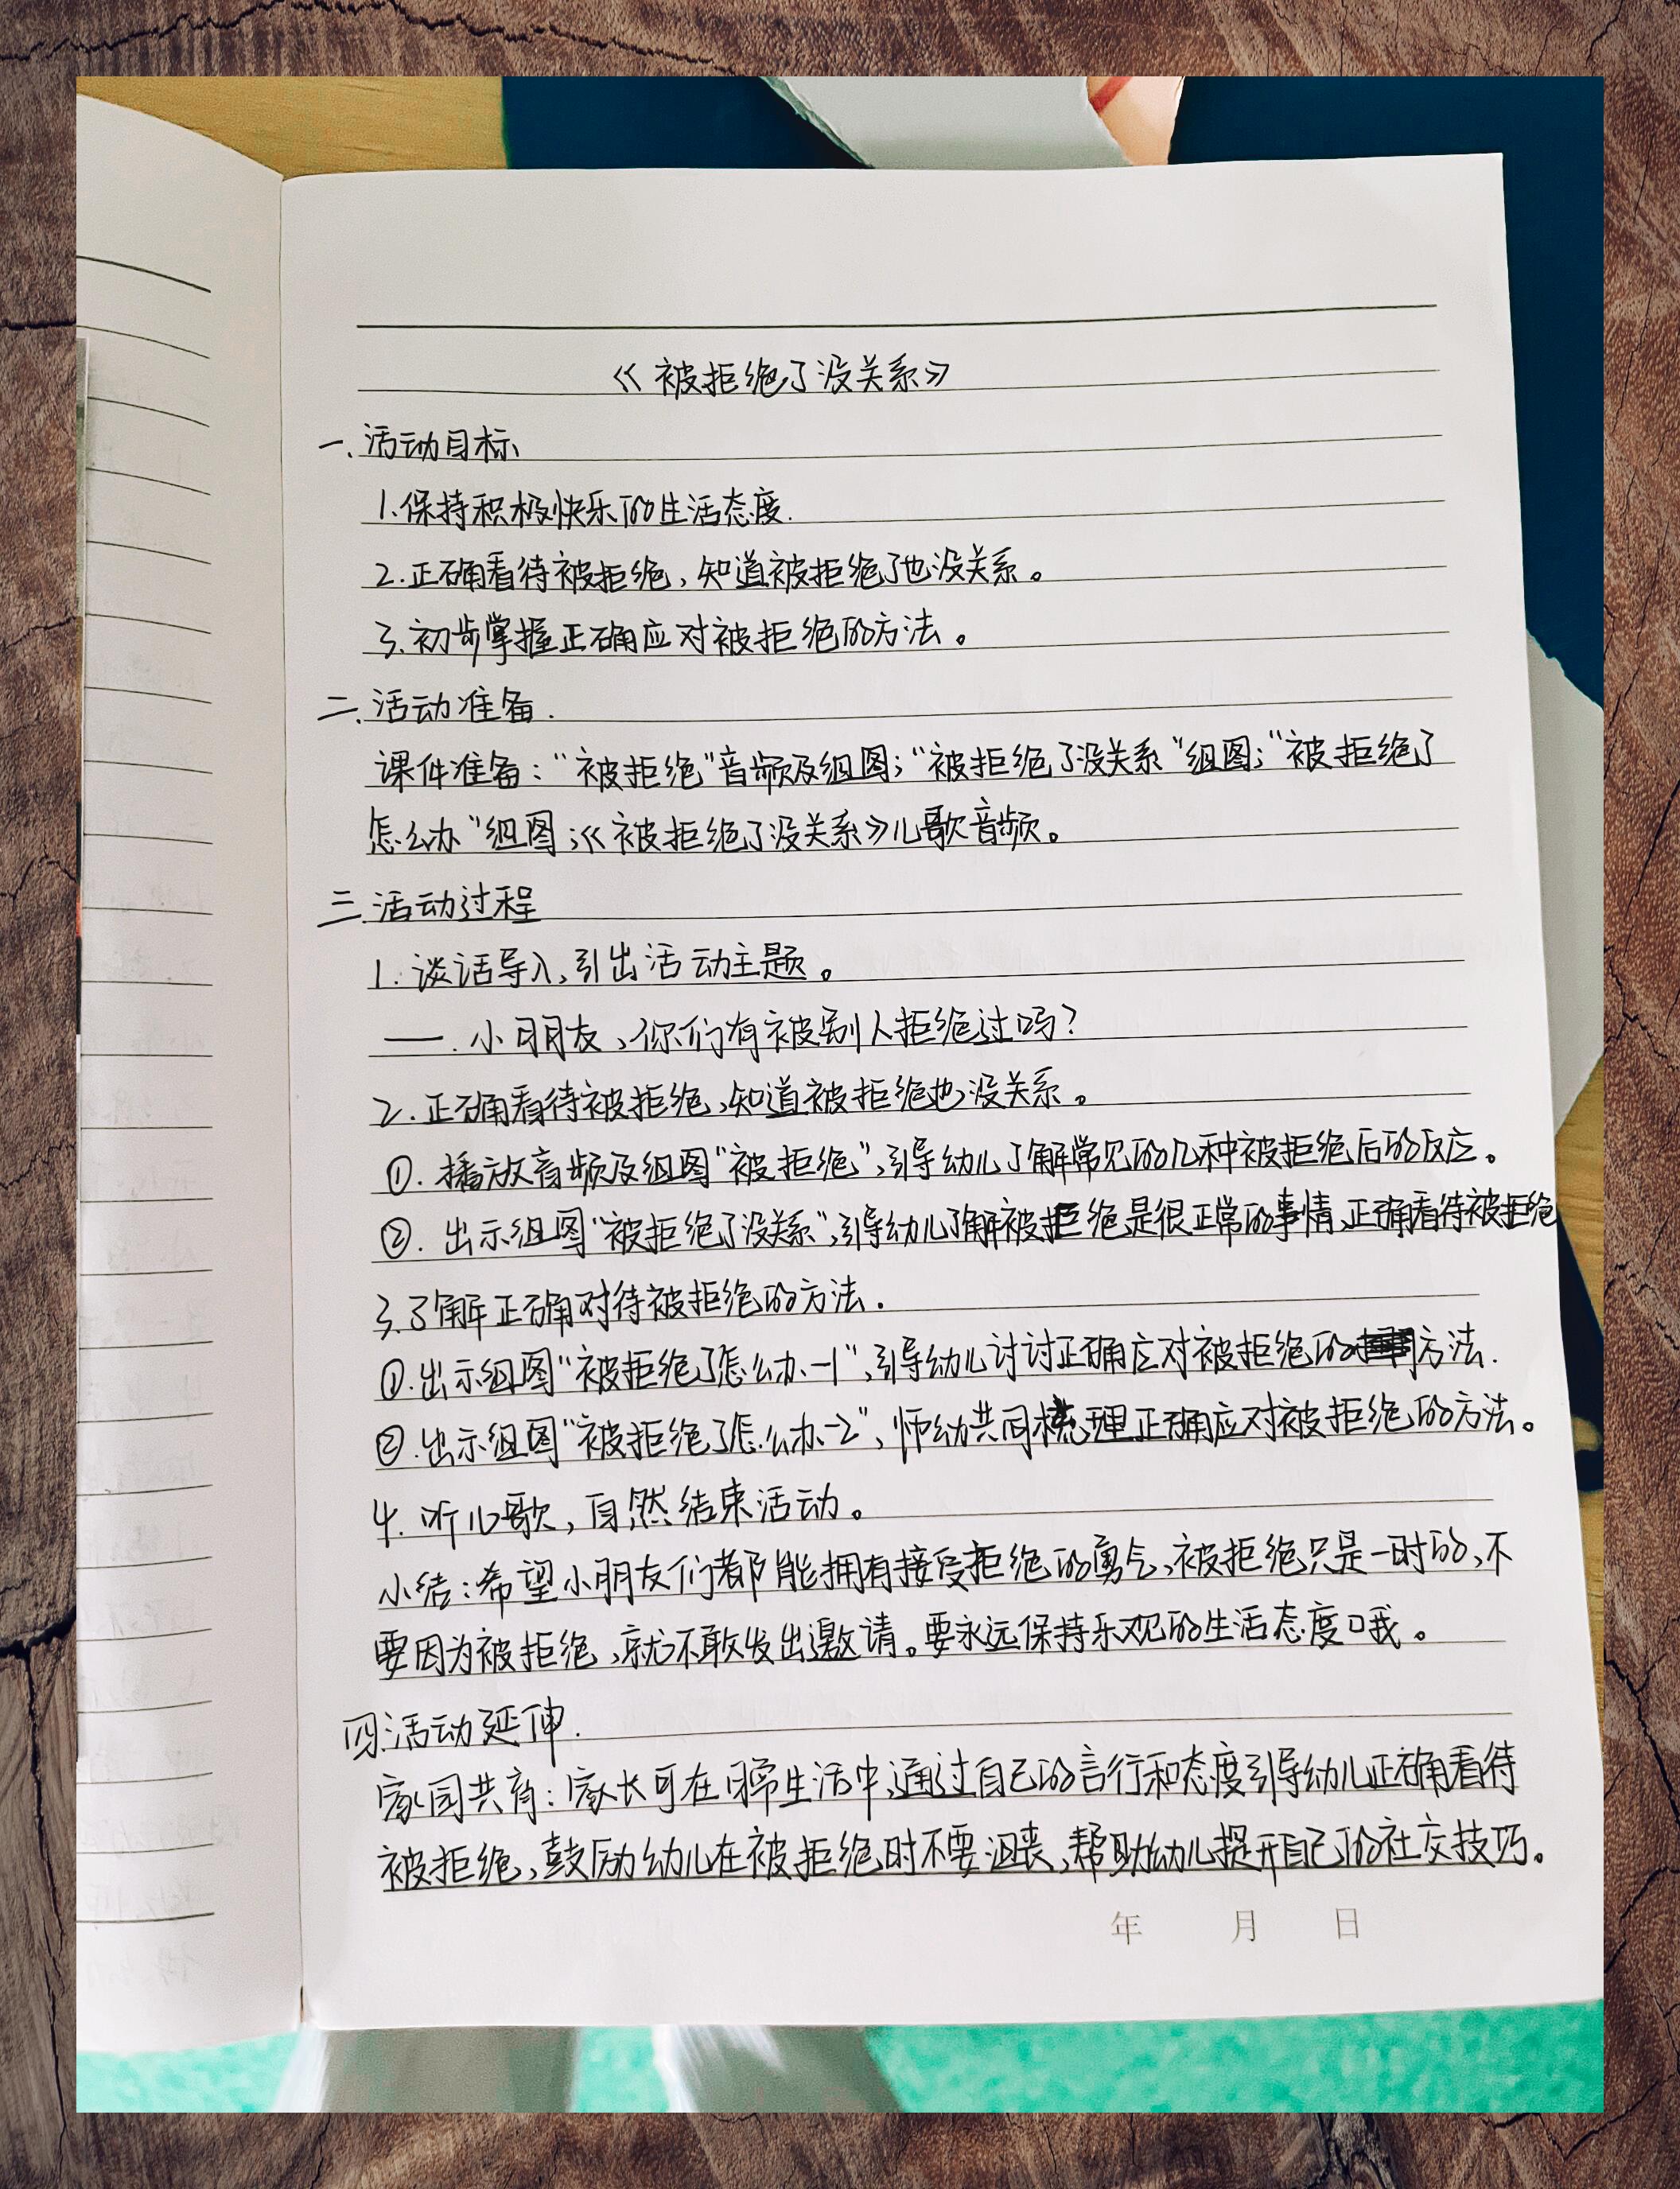 《被拒绝了没关系》
一、活动目标
1.保持积极快乐的生活态度.
2.正确看待被拒绝,知道被拒绝了也没关系。
3.初步掌握正确应对被拒绝的方法。
二、活动准备.
课件准备:“被拒绝”音频及组图;“被拒绝了没关系”组图;“被拒绝了
怎么办”组图;《被拒绝了没关系》儿歌音频。
三、活动过程
1.谈话导入,引出活动主题。
——.小朋友,你们有被别人拒绝过吗?
2.正确看待被拒绝,知道被拒绝也没关系。
①.播放音频及组图“被拒绝”,引导幼儿了解常见的几种被拒绝后的反应。
②.出示组图“被拒绝了没关系”,引导幼儿了解被拒绝是很正常的事情,正确看待被拒绝
3.了解正确对待被拒绝的方法.
①.出示组图“被拒绝了怎么办-1”,引导幼儿讨讨正确应对被拒绝的方法.
②.出示组图“被拒绝了怎么办-2”,师幼共同梳理正确应对被拒绝的方法。
4.听儿歌,自然结束活动。
小结:希望小朋友们都能拥有接受拒绝的勇气,被拒绝只是一时的,不
要因为被拒绝,就不敢发出邀请。要永远保持乐观的生活态度哦。
四.活动延伸.
家园共育:家长可在日常生活中,通过自己的言行和态度引导幼儿正确看待
被拒绝,鼓励幼儿在被拒绝时不要沮丧,帮助幼儿提升自己的社交技巧。
年 月 日